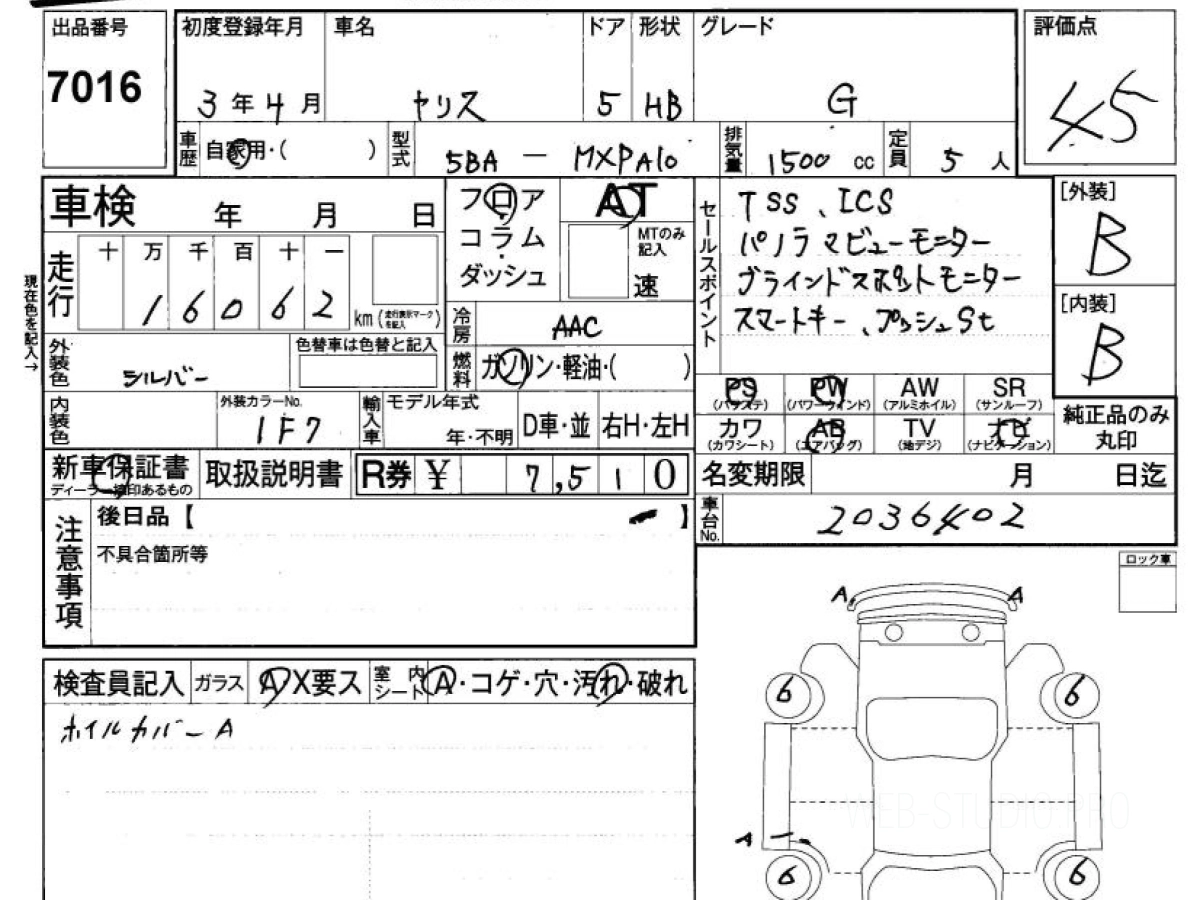 出品番号 初度登録年月 車名 ドア 形状 グレード 評価点
7016 3年4月 ヤリス 5 HB G 45
車歴 自家用・( ) 型式 5BA - MXPA10 排気量 1500 cc 定員 5 人
車検 年 月 日 フロア AT セールスポイント TSS、ICS [外装]
走行 十 万 千 百 十 一 コラム MTのみ記入 パノラマビューモニター B
現在色を記入→ 16062 km (走行表示マークを記入) ダッシュ 速 ブラインドスポットモニター [内装]
冷房 AAC スマートキー、プッシュSt B
外装色 シルバー 色替車は色替と記入 燃料 ガソリン・軽油・( )
PS PW AW SR
(パワステ) (パワーウインド) (アルミホイル) (サンルーフ)
内装色 外装カラーNo. 1F7 輸入車 モデル年式 年・不明 D車・並 右H・左H
カワ AB TV ナビ 純正品のみ
(カワシート) (エアバッグ) (地デジ) (ナビゲーション) 丸印
新車保証書 取扱説明書 R券 ¥ 7,510 名変期限 月 日迄
ディーラー捺印あるもの
車台No. 2036402
注意事項 後日品【 】
不具合箇所等
ロック車
A A
検査員記入 ガラス A X要ス 室内シート A・コゲ・穴・汚れ・破れ
6 6
ホイルカバーA
WEB-STUDIO.PRO
A
6 6